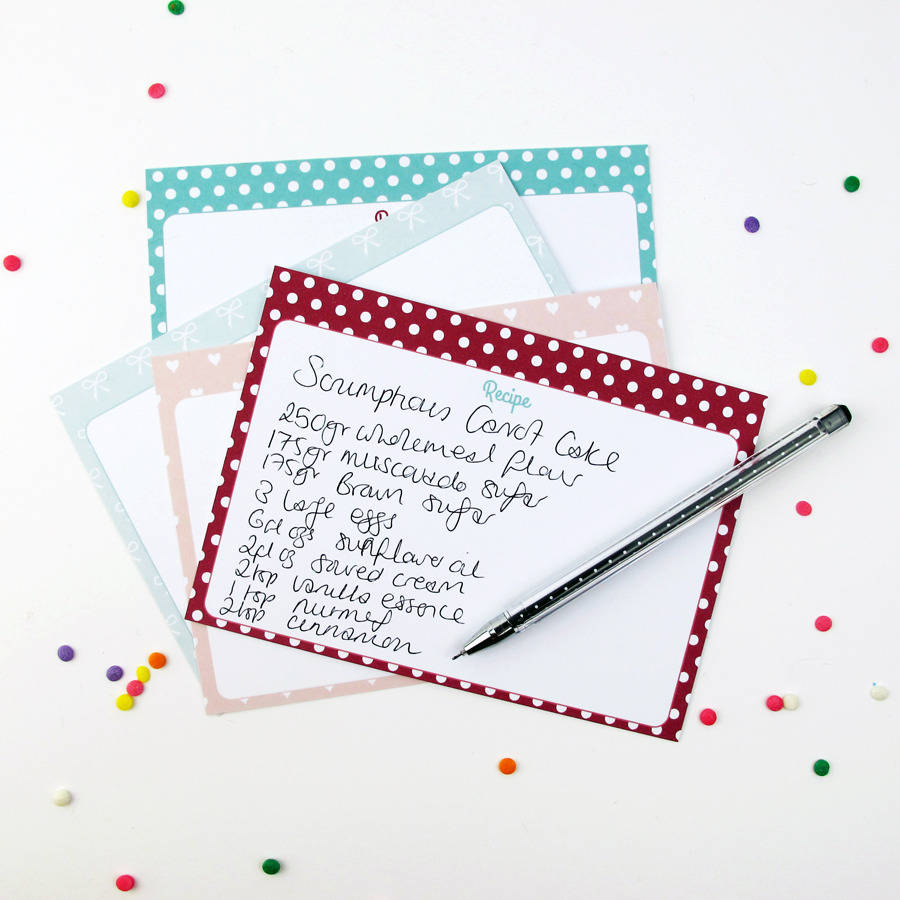 Recipe
Scrumptious Carrot Cake
250gr wholemeal flour
175gr muscavado sugar
175gr Brown sugar
3 large eggs
6fl ozs sunflower oil
2fl oz soured cream
2tsp vanilla essence
1tsp nutmeg
2tsp cinnamon